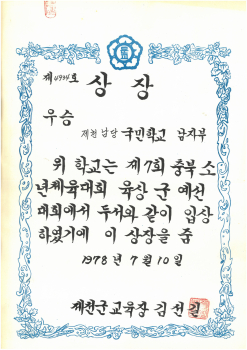 제4974호
상장
우승
제천남당 국민학교 남자부
위 학교는 제7회 충북소
년체육대회 육상 군 예선
대회에서 두서와 같이 입상
하였기에 이 상장을 줌
1978년 7월 10일
제천군교육장 김선길